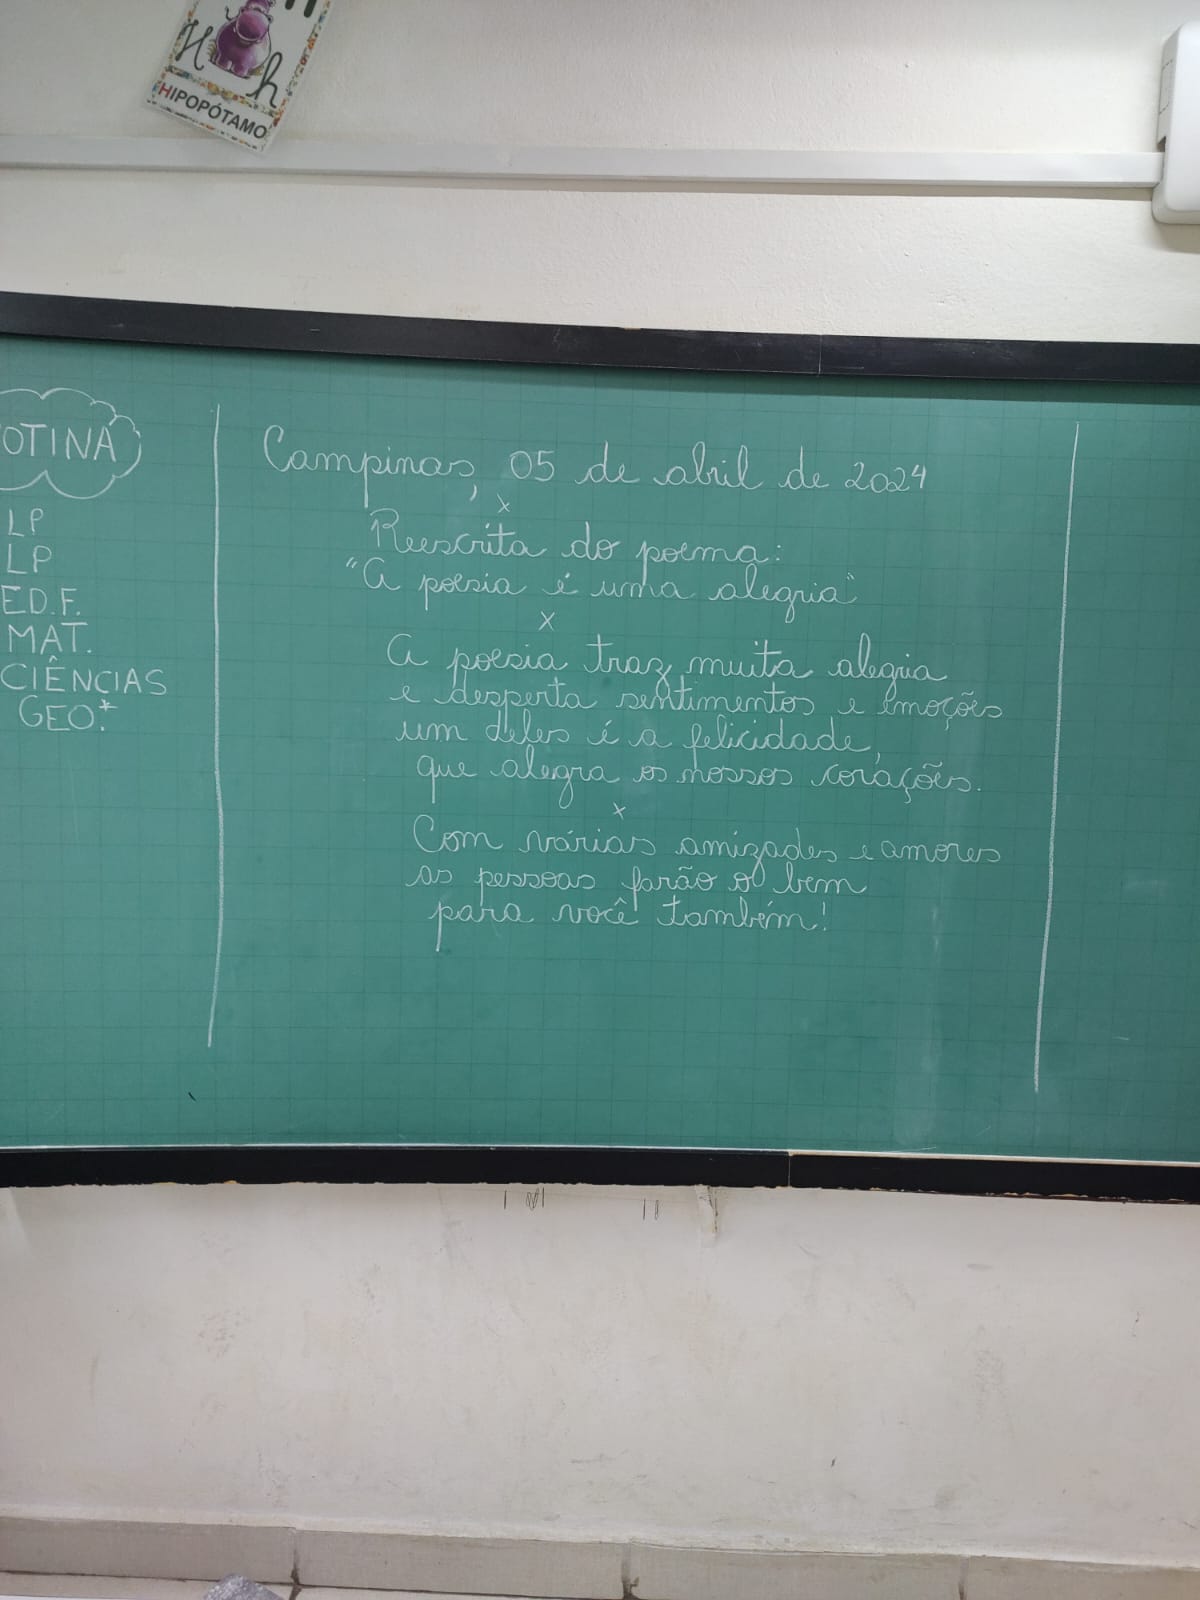 H h
HIPOPÓTAMO
OTINA
LP
LP
ED.F.
MAT.
CIÊNCIAS
GEO.*
Campinas, 05 de abril de 2024
x
Reescrita do poema:
"A poesia é uma alegria"
x
A poesia traz muita alegria
e desperta sentimentos e emoções
um deles é a felicidade,
que alegra os nossos corações.
x
Com várias amizades e amores
as pessoas farão o bem
para você também!